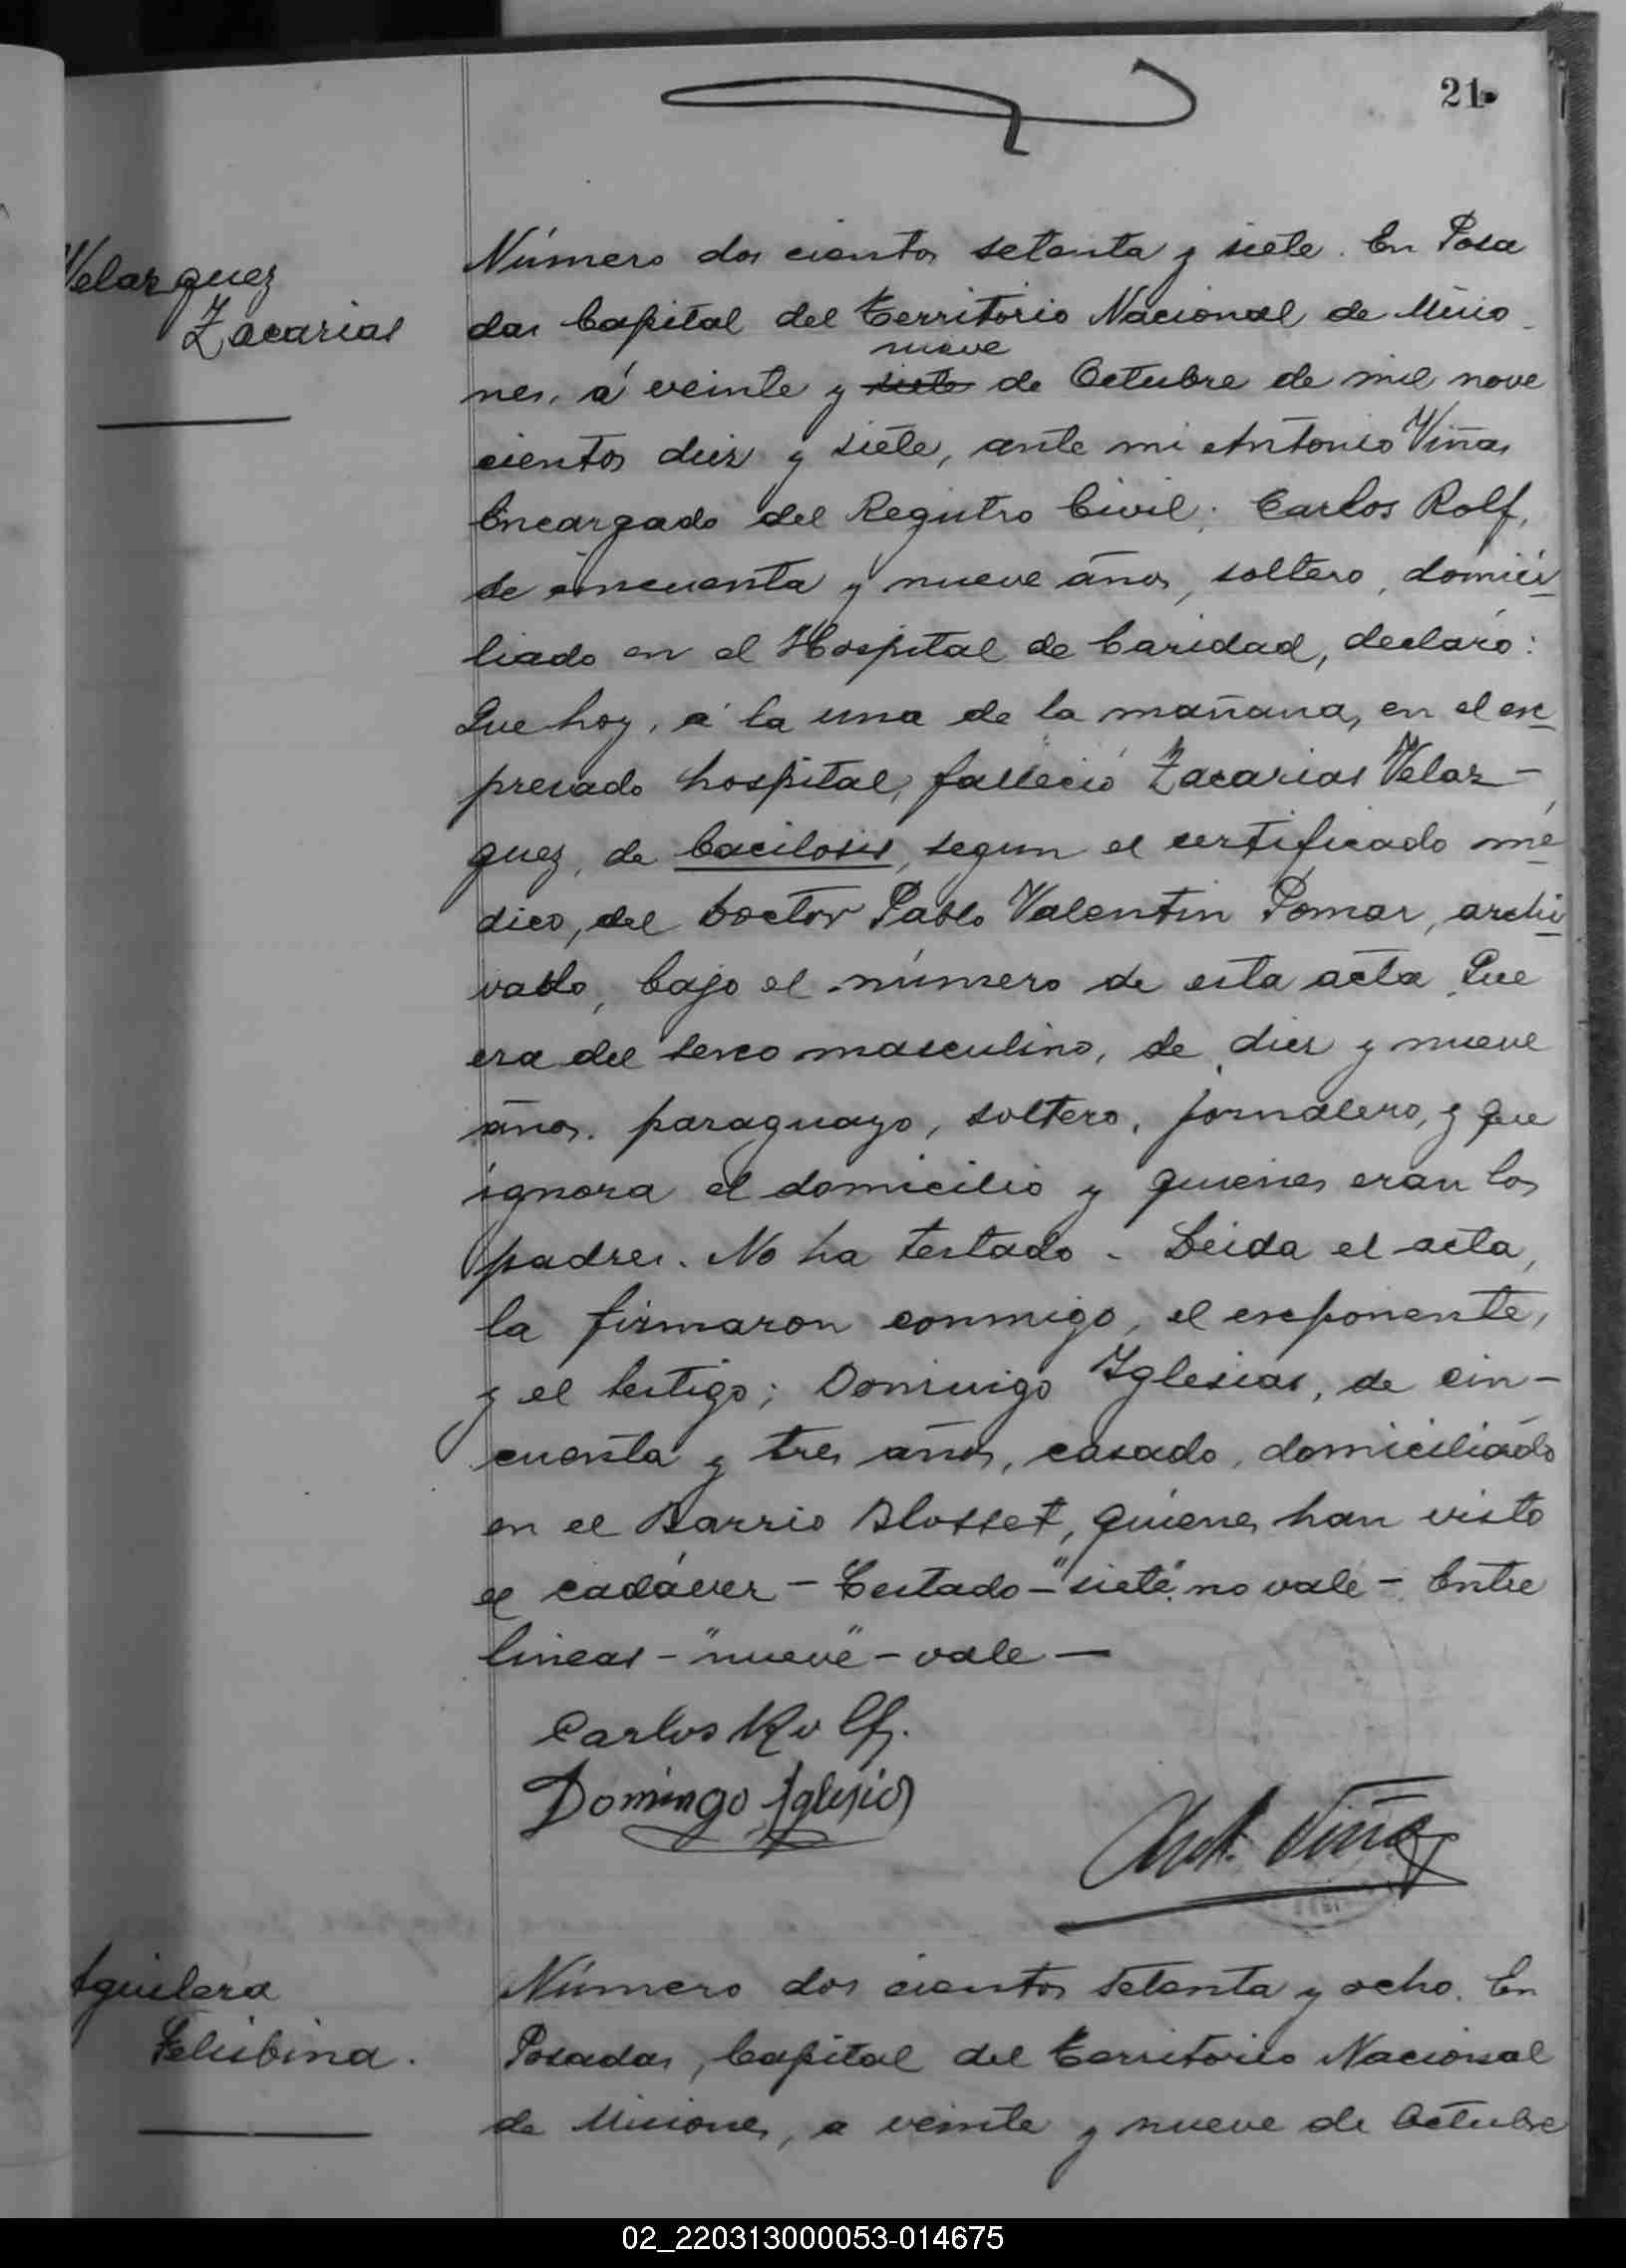 21
Velazquez
Zacarias
Número dos cientos setenta y siete. En Posa
das Capital del Territorio Nacional de Misio
nueve
nes, á veinte y siete de Octubre de mil nove
cientos diez y siete, ante mi Antonio Viñas
Encargado del Registro Civil; Carlos Rolf,
de cincuenta y nueve años, soltero, domici
liado en el Hospital de Caridad, declaró:
Que hoy, á la una de la mañana, en el ex
presado hospital, falleció Zacarias Velaz-
quez, de bacilosis, segun el certificado mé
dico, del Doctor Pablo Valentin Pomar, archi
vado, bajo el número de esta acta. Que
era del sexo masculino, de diez y nueve
años. paraguayo, soltero, jornalero, y que
ignora el domicilio y quienes eran los
padres. No ha testado - Leida el acta,
la firmaron conmigo, el exponente,
y el testigo; Domingo Iglesias, de cin-
cuenta y tres años, casado, domiciliado
en el Barrio Blosset, quienes han visto
el cadáver - Testado - "siete" no vale - Entre
lineas - "nueve" - vale -
Carlos Rolf.
Domingo Iglesias
Ant. Viñas
Aguilera
Felisbina.
Número dos cientos setenta y ocho. En
Posadas, Capital del Territorio Nacional
de Misiones, a veinte y nueve de Octubre
02_220313000053-014675